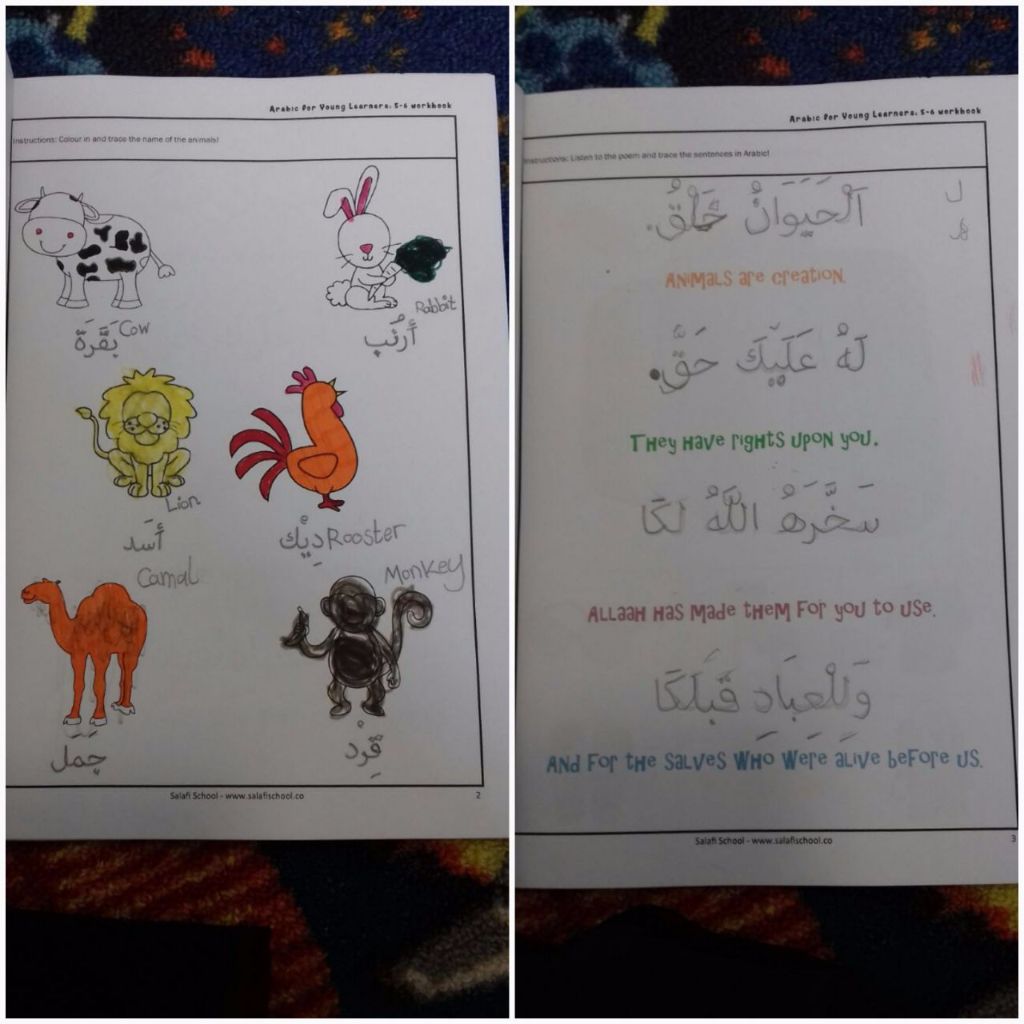 Arabic for Young Learners: 5-6 workbook
Instructions: Colour in and trace the name of the animals!
Rabbit
Cow
بَقَرَة
أَرْنَب
Lion
أَسَد
Rooster
دِيْك
Camal
Monkey
جَمَل
قِرْد
Salafi School - www.salafischool.co
2
Arabic for Young Learners: 5-6 workbook
Instructions: Listen to the poem and trace the sentences in Arabic!
اَلْحَيَوَانُ خَلْقٌ.
ل
ه
ANIMALS are CREATION.
لَهُ عَلَيْكَ حَقٌّ.
THEY HAVE RIGHTS UPON YOU.
سَخَّرَهُ اللَّهُ لَكَا
ALLAAH HAS MADE THEM FOR YOU TO USE.
وَلِلْعِبَادِ قَبْلَكَا
AND FOR THE SALVES WHO WERE ALIVE BEFORE US.
Salafi School - www.salafischool.co
3